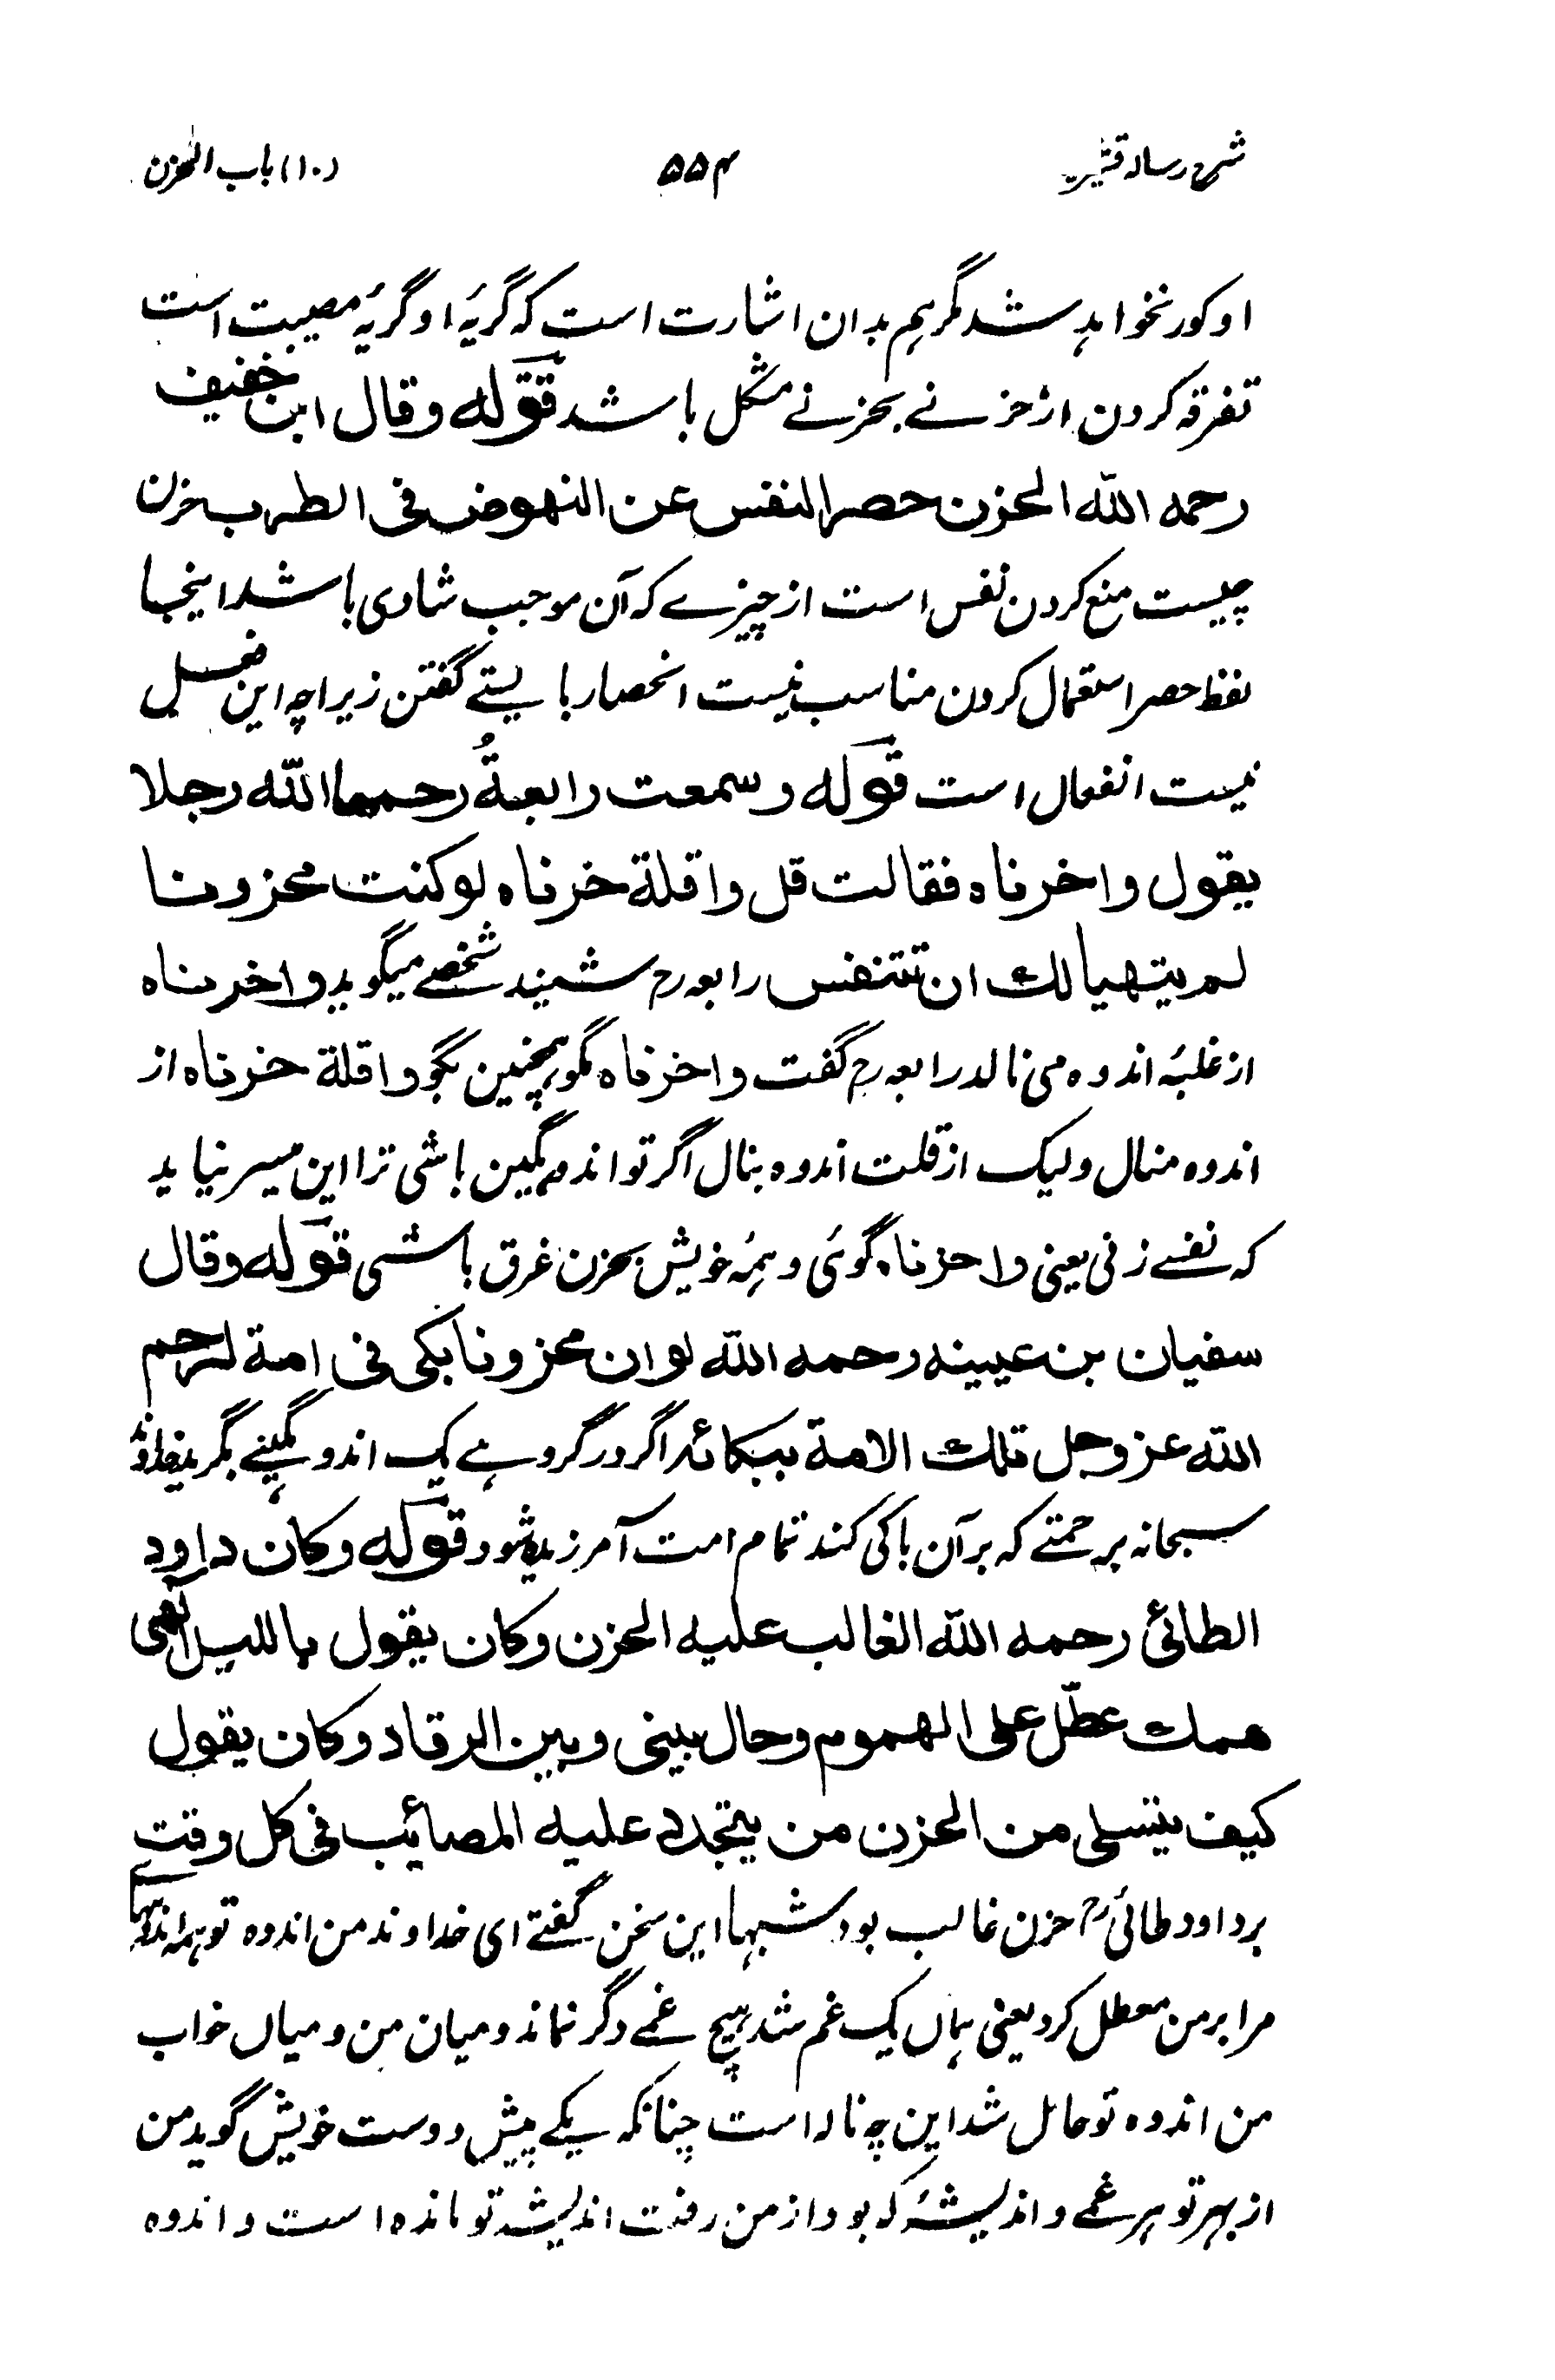 شرح رسالہ قشیریہ ۵۵۴ (۱۰) باب الحزن
او کور نخواہد شد مگر ہم بدان اشارت است کہ گریۂ او گریۂ مصیبت است
تفرقہ کردن از حزنے بحزنے مشکل باشد قولہ وقال ابن خفیف
رحمہ اللہ الحزن حصر النفس عن النهوض فی الطرب حزن
چیست منع کردن نفس است از چیزے کہ آن موجب شادی باشد اینجا
لفظ حصر استعمال کردن مناسب نیست انحصار بایستے گفتن زیراچہ این فعل
نیست انفعال است قولہ و سمعت رابعةُ رحمها اللہ رجلا
یقول واحزناه فقالت قل واقلة حزناه لو کنت محزونا
لم یتهیا لك ان تتنفس رابعہ رح شنید شخصے میگوید واحزناه
از غلبۂ اندوہ می نالد رابعہ رح گفت واحزناه مگو ہمچنین بگو واقلة حزناه از
اندوہ منال ولیک از قلت اندوہ بنال اگر تو اندوہگین باشی ترا این میسر نیاید
کہ نفسے زنی یعنی واحزناه گوئی و ہمہ خویش بحزن غرق باشی قولہ وقال
سفیان بن عیینه رحمه اللہ لو ان محزونا بکی فی امة لرحم
اللہ عز وجل تلك الامة ببکائه اگر در گروہے یک اندوہگینے بگرید خداوند
سبحانہ بہ رحمتے کہ بر آن باکی کند تمام امت آمرزیدہ شود قولہ وکان داود
الطائی رحمه اللہ الغالب علیه الحزن وکان یقول باللیل الٰهی
همك عطّل علی الهموم وحال بینی وبین الرقاد وکان یقول
کیف یتسلی من الحزن من یتجدد علیه المصائب فی کل وقت
بر داود طائی رح حزن غالب بود شبہا این سخن گفتے ای خداوند من اندوہ تو ہمہ اندوہہاے
مرا بر من معطل کرد یعنی ہماں یک غم شد ہیچ غمے دگر نماند و میان من و میاں خواب
من اندوہ تو حائل شد این چہ نالہ است چنانکہ یکے پیش دوست خویش گوید من
از بہر تو ہر غمے و اندیشۂ کہ بود از من رفت اندیشہ تو ماندہ است و اندوہ